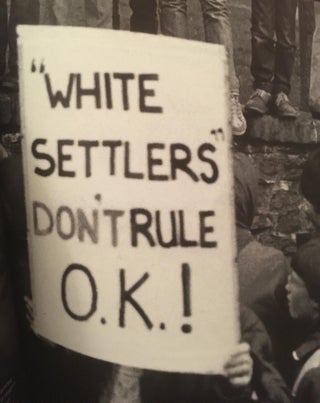 "WHITE
SETTLERS"
DON'T RULE
O.K.!